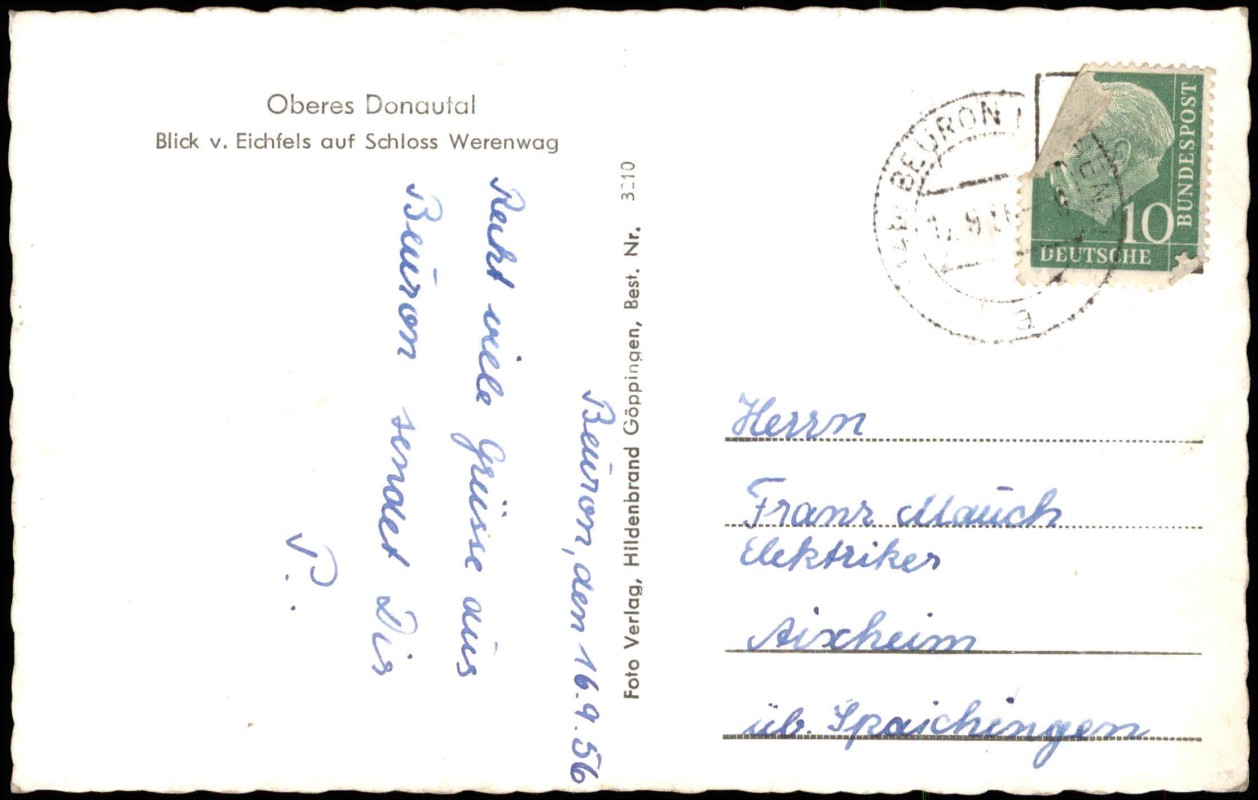 Oberes Donautal
Blick v. Eichfels auf Schloss Werenwag
Beuron, den 16.9.56
Recht viele Grüsse aus
Beuron sendet Dir
P.
Foto Verlag, Hildenbrand Göppingen, Best. Nr.
BEURON
a
10
DEUTSCHE
BUNDESPOST
Herrn
Franz Mauch
Elektriker
Aixheim
üb. Spaichingen